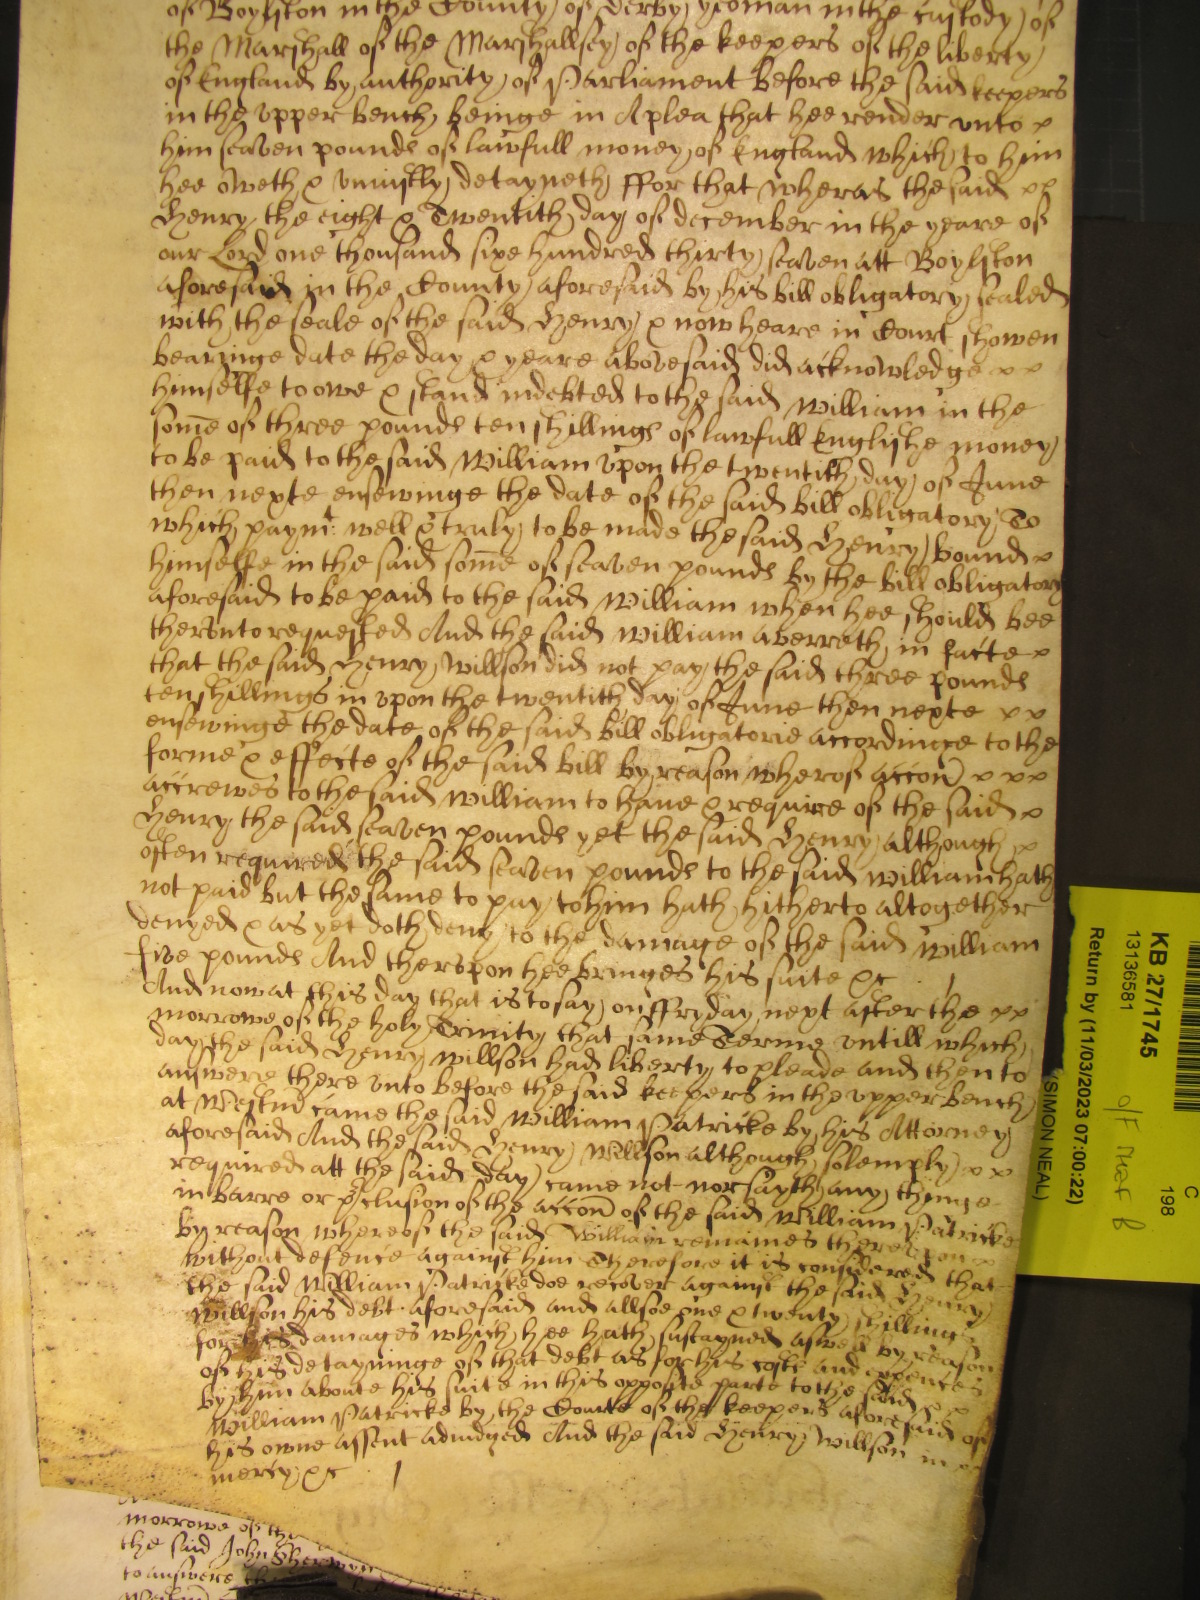 of Boylston in the County of Derby yeoman in the custody of
the Marshall of the Marshallsey of the keepers of the liberty
of England by authority of Parliament before the said keepers
in the vpper bench beinge in A plea that hee render vnto x
him seaven pounds of lawfull money of England which to him
hee oweth & uniustly detayneth ffor that wheras the said xx
Henry the eight & Twentith day of december in the yeare of
our Lord one thousand sixe hundred thirty seaven att Boylston
aforesaid in the County aforesaid by his bill obligatory sealed
with the seale of the said Henry & now heare in Court showen
bearinge date the day & yeare abovesaid did acknowledge xx
himselfe to owe & stand indebted to the said William in the
some of three pounds ten shillings of lawfull Englishe money
to be paid to the said William vpon the twentith day of June
then nexte ensewinge the date of the said bill obligatory To
which paymt well & truly to be made the said Henry bound x
himselfe in the said some of seaven pounds by the bill obligatory
aforesaid to be paid to the said William when hee should bee
thervnto requested And the said William averreth in facte x
that the said Henry Willson did not pay the said three pounds
ten shillings in vpon the twentith day of June then nexte xx
ensewinge the date of the said bill obligatorie accordinge to the
forme & effecte of the said bill by reason wherof accon xxx
accrewes to the said William to haue & require of the said x
Henry the said seaven pounds yet the said Henry although x
often required the said seaven pounds to the said William hath
not paid but the same to pay to him hath hitherto altogether
denyed & as yet doth deny to the damage of the said William
five pounds And thervpon hee bringes his suite &c
And now at this day that is to say on ffryday next after the xx
morrowe of the holy Trinity that same Terme vntill which
day the said Henry Willson had liberty to pleade and then to
answere there vnto before the said keepers in the vpper bench
at Westm came the said William Patricke by his Attorney
aforesaid And the said Henry Willson although solemply xx
required att the said day came not nor sayth any thinge
in barre or pclusion of the accon of the said William Patricke
by reason whereof the said William remaines therevpon x
without defence against him Therefore it is considered that
the said William Patricke doe recover against the said Henry
Willson his debt aforesaid and allsoe one & twenty shillings
for his damages which hee hath sustayned aswell by reason
of his detayninge of that debt as for his costs and expences
by him aboute his suite in this opposite parte to the said xx
William Patricke by the Courte of the keepers aforesaid of
his owne assent adiudged And the said Henry Willson in x
mercy &c
morrowe of the
the said John Sherwyn
to answere
KB 27/1745
13136581
Return by (11/03/2023 07:00:22)
(SIMON NEAL)
C
198